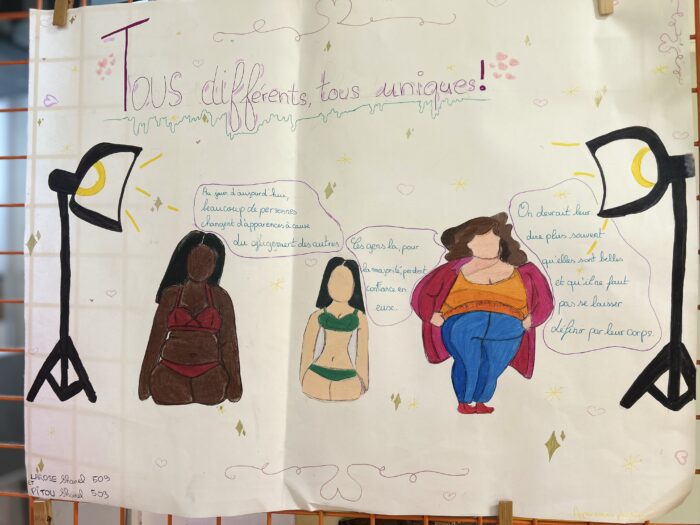 Tous différents, tous uniques!
Au jour d'aujourd'hui,
beaucoup de personnes
changent d'apparences à cause
du jugement des autres
Ces gens là, pour
la majorité, perdent
confiance en
eux.
On devrait leur
dire plus souvent
qu'elles sont belles
et qu'il ne faut
pas se laisser
définir par leur corps.
LAROSE 509
ET
PITOU 503